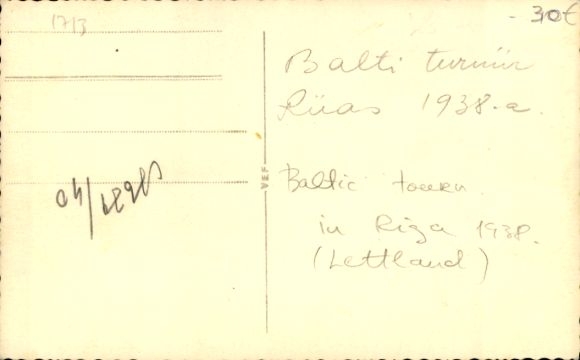 1713
- 30€
Balti turniir
Riias 1938.a.
VEF
Baltic tourn.
in Riga 1938.
(Lettland)